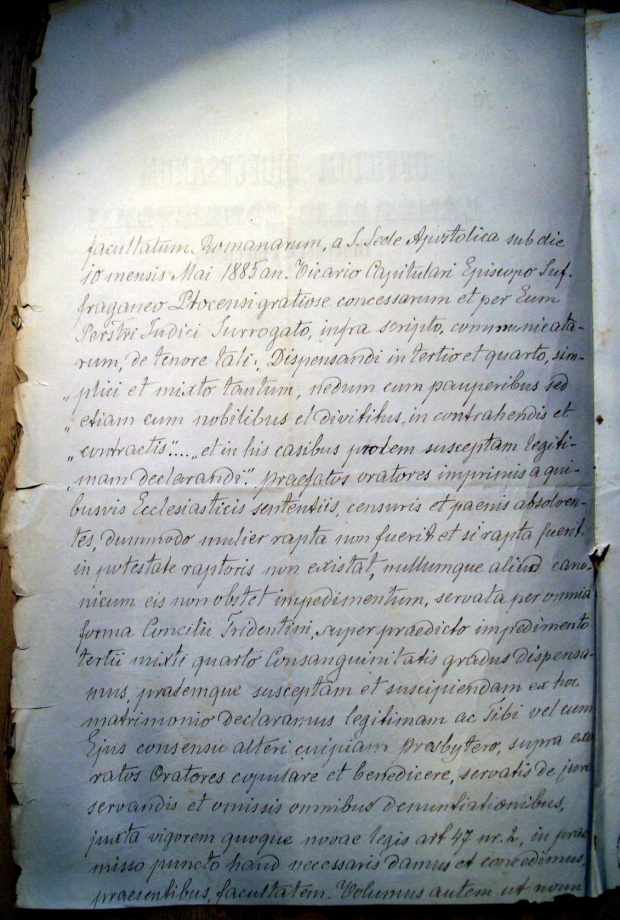 facultatum Romanarum, a S. Sede Apostolica sub die
10 mensis Mai 1885 an. Vicario Capitulari Episcopo Suf-
fraganeo Plocensi gratiose concessarum et per Eum
Judici Surrogato, infra scripto, communicata-
rum, de tenore tali: „Dispensandi in tertio et quarto, sim-
„plici et mixto tantum, nedum cum pauperibus sed
„etiam cum nobilibus et divitibus, in contrahendis et
„contractis".... „et in his casibus prolem susceptam legiti-
„mam declarandi". praefatos oratores imprimis a qui-
busvis Ecclesiasticis sententiis, censuris et paenis absolven-
tes, dummodo mulier rapta non fuerit et si rapta fuerit,
in potestate raptoris non existat, nullumque aliud cano-
nicum eis non obstet impedimentum, servata per omnia
forma Concilii Tridentini, super praedicto impedimento
tertii mixti quarto Consanguinitatis gradus dispensa-
mus, prolemque susceptam et suscipiendam ex hoc
matrimonio declaramus legitimam ac Tibi vel cum
Ejus consensu alteri cuipiam Presbytero, supra exo-
ratos Oratores copulare et benedicere, servatis de jure
servandis et omissis omnibus denuntiationibus,
juxta vigorem quoque novae legis art 47 nr. 2, in prae-
misso puncto haud necessariis damus et concedimus,
praesentibus, facultatem. Volumus autem ut